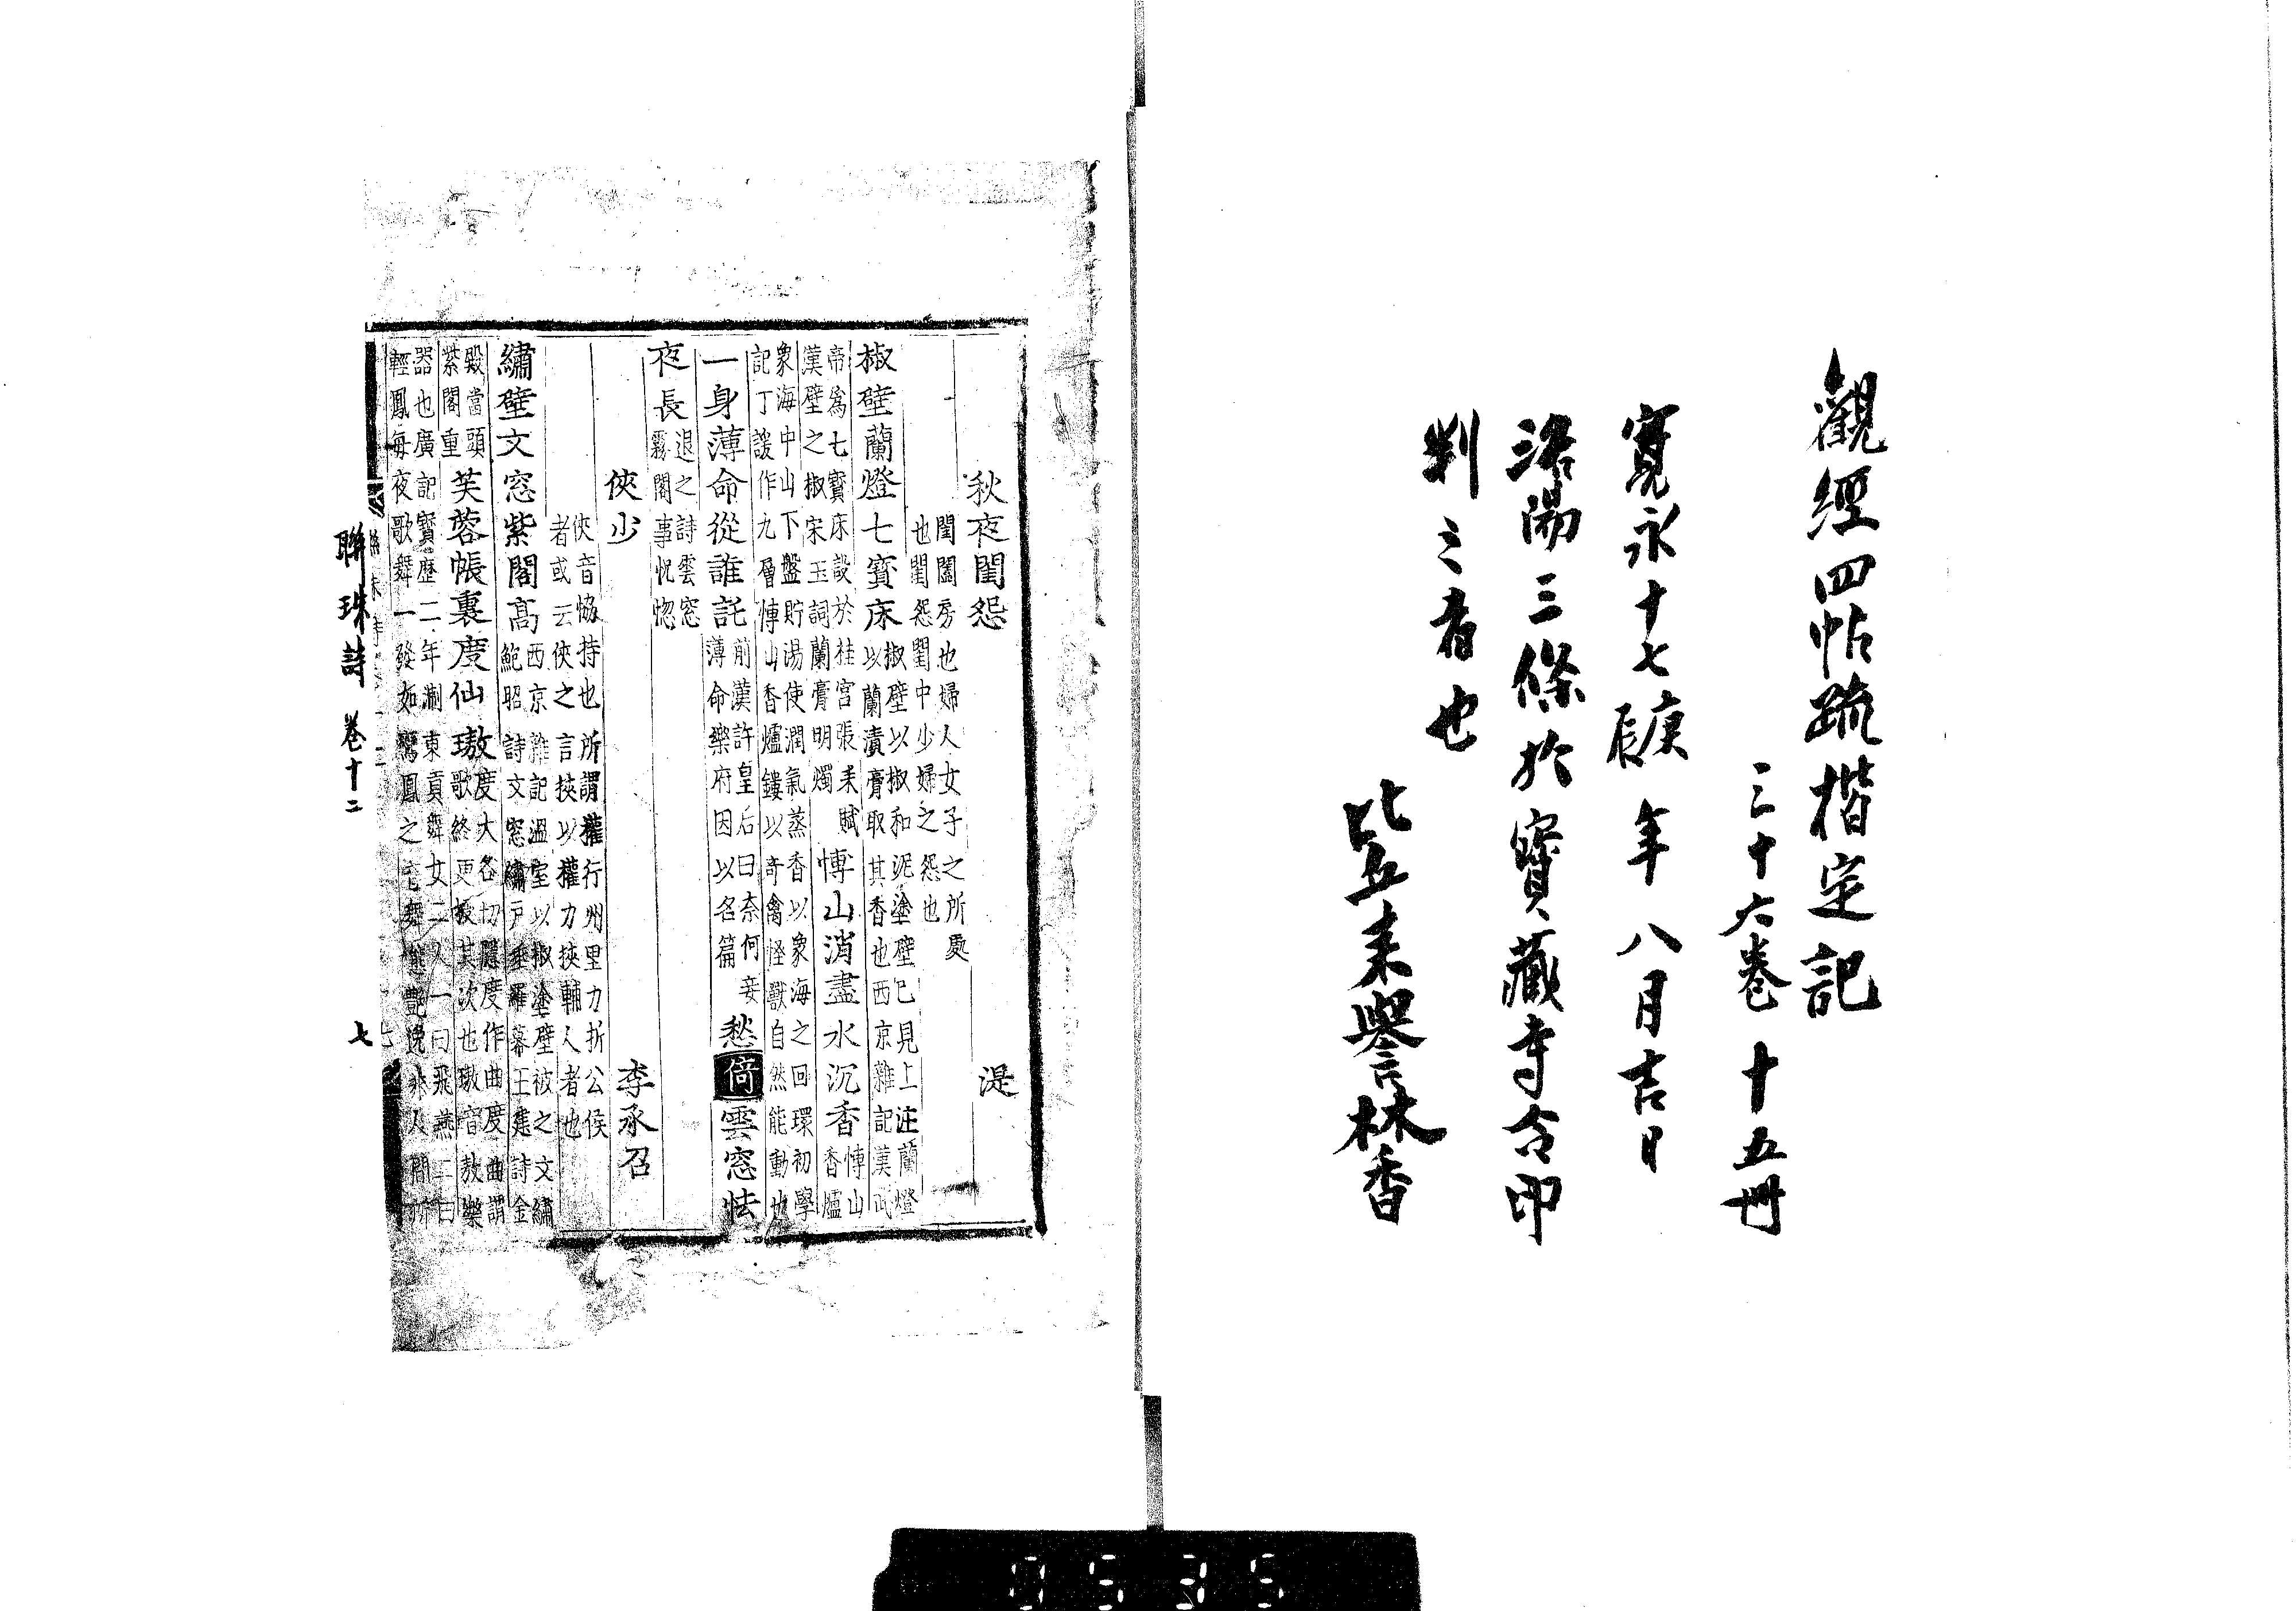 觀經四帖疏楷定記
三十六卷十五冊
寬永十七庚辰年八月吉日
洛陽三條於寶藏寺令印
判之者也
比丘耒譽林香
秋夜閨怨 湜
閨闥房也婦人女子之所處
也閨怨閨中少婦之怨也
椒壁蘭燈七寶床
椒壁以椒和泥塗壁已見上注蘭燈
以蘭漬膏取其香也西京雜記漢武
帝為七寶床設於桂宮張耒賦
漢壁之椒宋玉詞蘭膏明燭
博山消盡水沉香
博山香爐
衆海中山下盤貯湯使潤氣蒸香以衆海之回環初學
記丁諼作九層博山香爐鏤以奇禽怪獸自然能動也
一身薄命從誰託
前漢許皇后曰奈何妾
薄命樂府因以名篇
愁倚雲窓怯
夜長
退之詩雲窓
霧閣事恍惚
俠少 李承召
俠音協持也所謂權行州里力折公侯
者或云俠之言挾以權力挾輔人者也
繡壁文窓紫閣高
西京雜記溫室以椒塗壁被之文繡
鮑昭詩文窓繡戶垂羅幕王隼詩金
殿當頭
紫閣重
芙蓉帳裏度仙璈
度大各切隱度作曲度曲謂
歌終更授其次也璈音敖樂
器也廣記寶歷二年淛東貢舞女二人一曰飛燕二曰
輕鳳每夜歌舞一發如鸞鳳之音舞態艷逸非人間所
聯珠詩 卷十二 七
0535